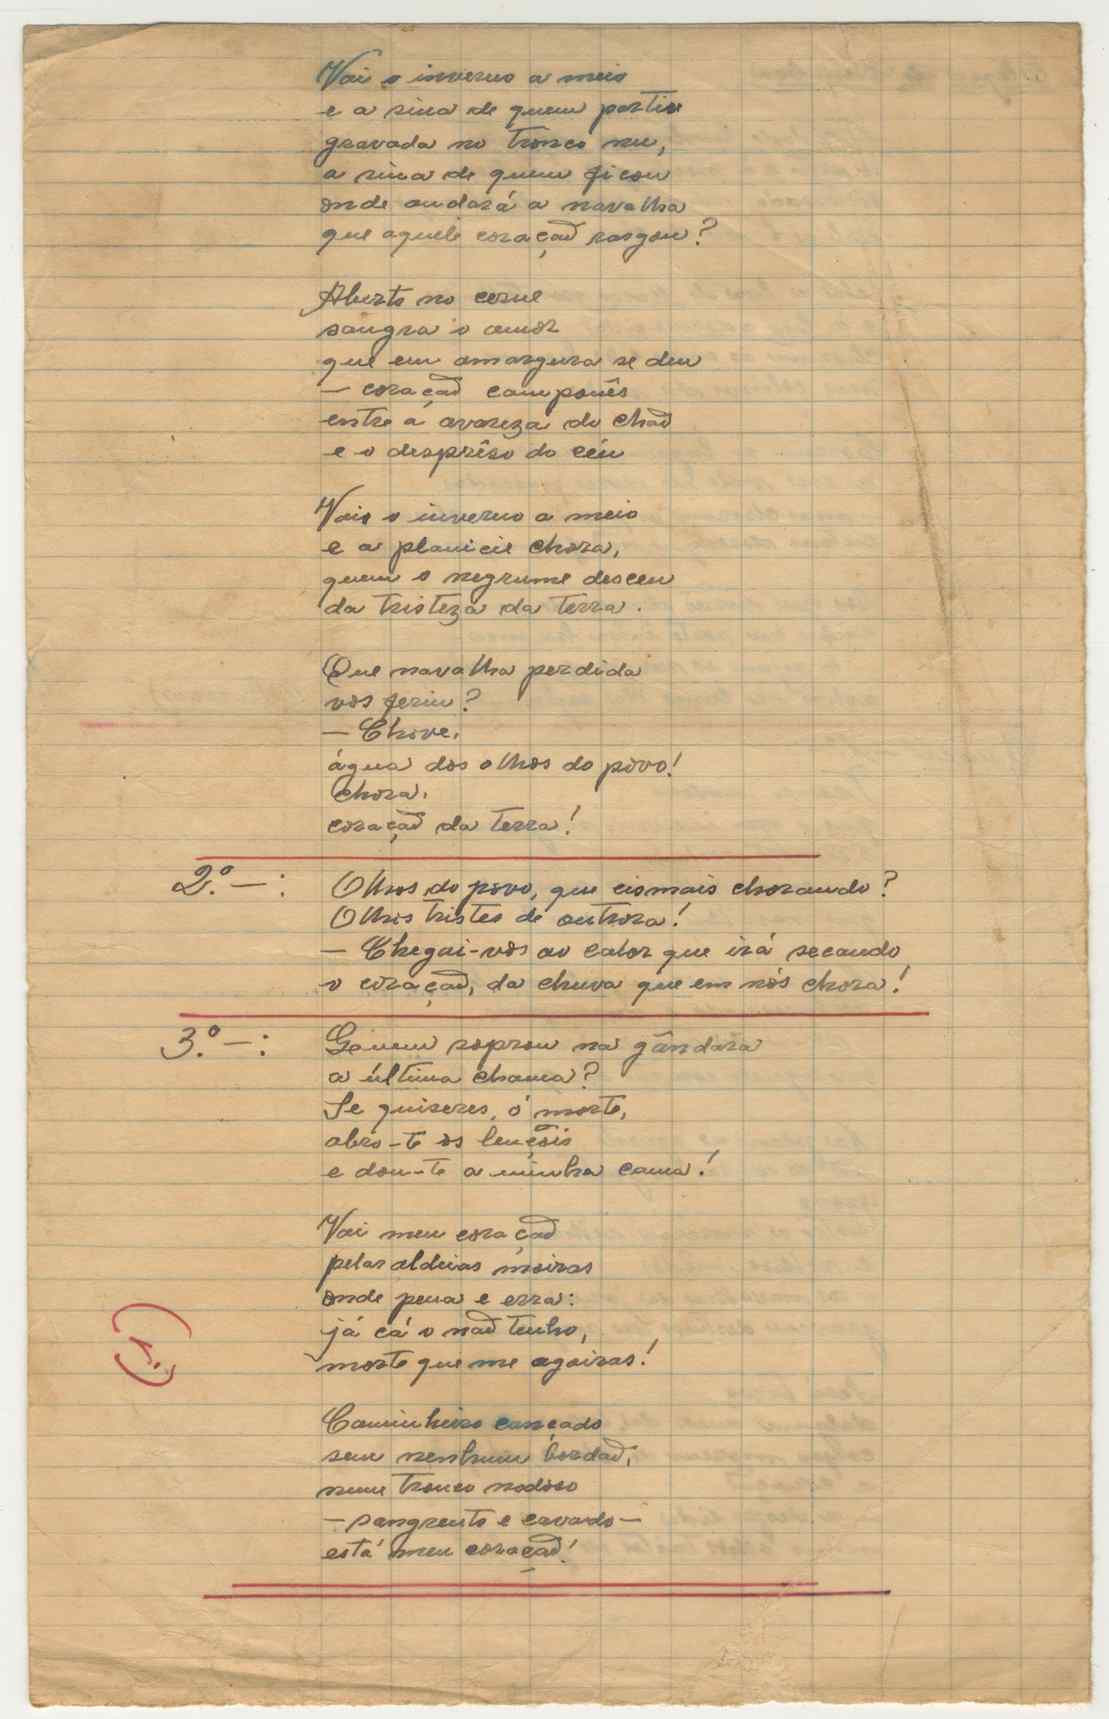 Vai o inverno a meio
e a sina de quem partiu
gravada no tronco nu,
a sina de quem ficou
onde andará a navalha
que aquele coração rasgou?
Aberto no cerne
sangra o amor
que em amargura se deu
— coração camponês
entre a avareza do chão
e o desprêso do céu
Vai o inverno a meio
e a planície chora,
quem o negrume desceu
da tristeza da terra.
Que navalha perdida
vos feriu?
— Chove,
água dos olhos do povo!
Chora,
coração da terra!
2.º —: Olhos do povo, que cismais chorando?
Olhos tristes de outrora!
— Chegai-vos ao calor que irá secando
o coração, da chuva que em nós chora!
3.º —: Gemem sopram na gândara
a última chama?
Se quiseres, ó morte,
abro-te os lençóis
e dou-te a minha cama!
Vai meu coração
pelas aldeias moiras
onde pena e erra:
já cá o não tenho,
morte que me agoiras!
(1.)
Caminheiro cançado
sem nenhum bordão,
num tronco nodoso
— sangrento e cavado —
está meu coração!